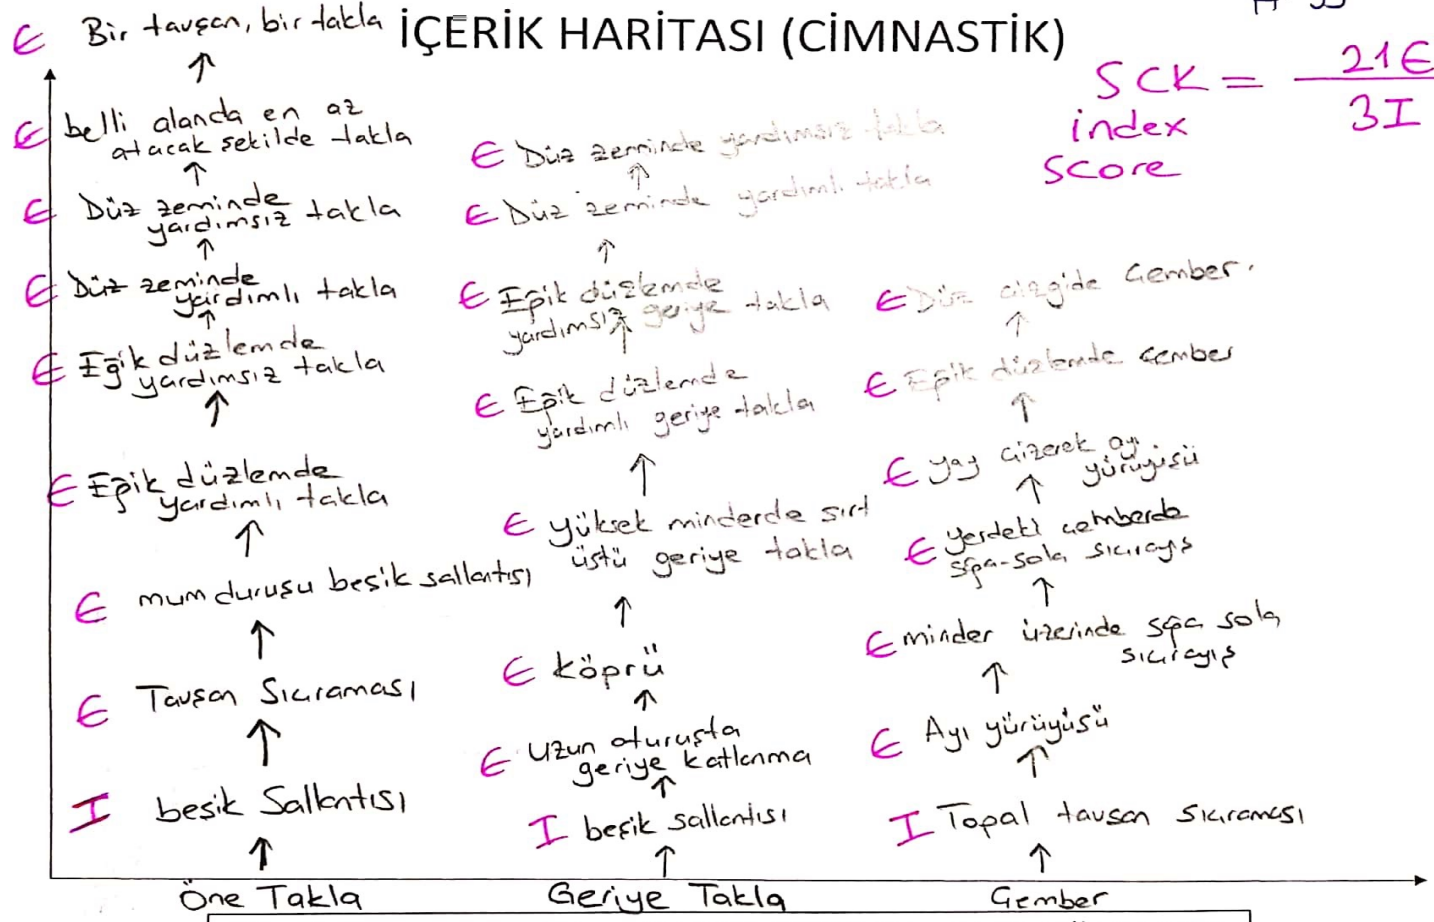 İÇERİK HARİTASI (CİMNASTİK)
SCK = 21E
3I
index
score
E Bir tavşan, bir takla
E belli alanda en az
atacak şekilde takla
E Düz zeminde
yardımsız takla
E Düz zeminde
yardımlı takla
E Eğik düzlemde
yardımsız takla
E Eğik düzlemde
yardımlı takla
E mum duruşu beşik sallantısı
E Tavşan Sıçraması
I beşik Sallantısı
Öne Takla
E Düz zeminde yardımsız takla
E Düz zeminde yardımlı takla
E Eğik düzlemde
yardımsız geriye takla
E Eğik düzlemde
yardımlı geriye takla
E yüksek minderde sırt
üstü geriye takla
E köprü
E Uzun oturuşta
geriye katlanma
I beşik sallantısı
Geriye Takla
E Düz çizgide Çember.
E Eğik düzlemde çember
E yay çizerek ayı
yürüyüşü
E yerdeki çemberde
sağa-sola sıçrayış
E minder üzerinde sağa sola
sıçrayış
E Ayı yürüyüşü
I Topal tavşan sıçraması
Çember